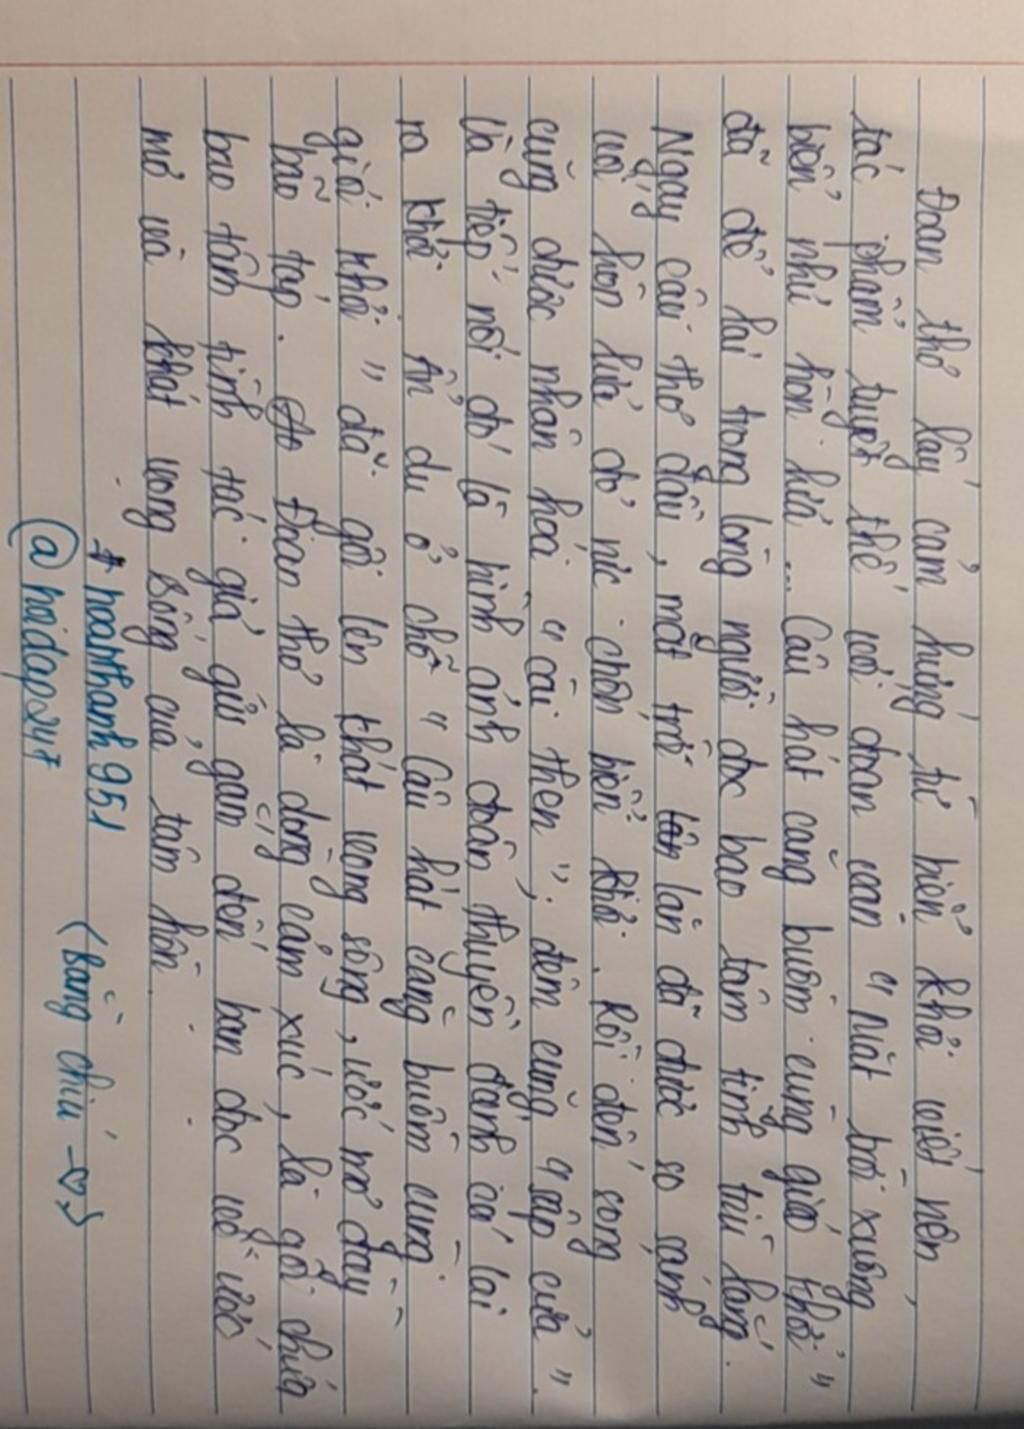 Đoạn thơ lấy cảm hứng từ biển khơi viết nên,
tác phẩm tuyệt thế với đoạn văn "Mặt trời xuống
biển như hòn lửa ... Câu hát căng buồm cùng gió khơi"
đã để lại trong lòng người đọc bao tâm tình trĩu lắng.
Ngay câu thơ đầu, mặt trời lặn đã được so sánh
với hòn lửa đỏ rực chốn biển khơi. Rồi đến sóng
cũng được nhân hoá "cài then", đêm cũng "sập cửa".
Và tiếp nối đó là hình ảnh đoàn thuyền đánh cá lại
ra khơi. Ẩn dụ ở chỗ "Câu hát căng buồm cùng
gió khơi" đã gợi lên khát vọng sống, ước mơ đầy
bão táp. Đoạn thơ là dòng cảm xúc, là gói chứa
bao tâm tình tác giả gửi gắm đến bạn đọc với ước
mơ và khát vọng sống của tâm hồn.
#hoanthanh951 (Bằng chiu -♡)
@hoidap247